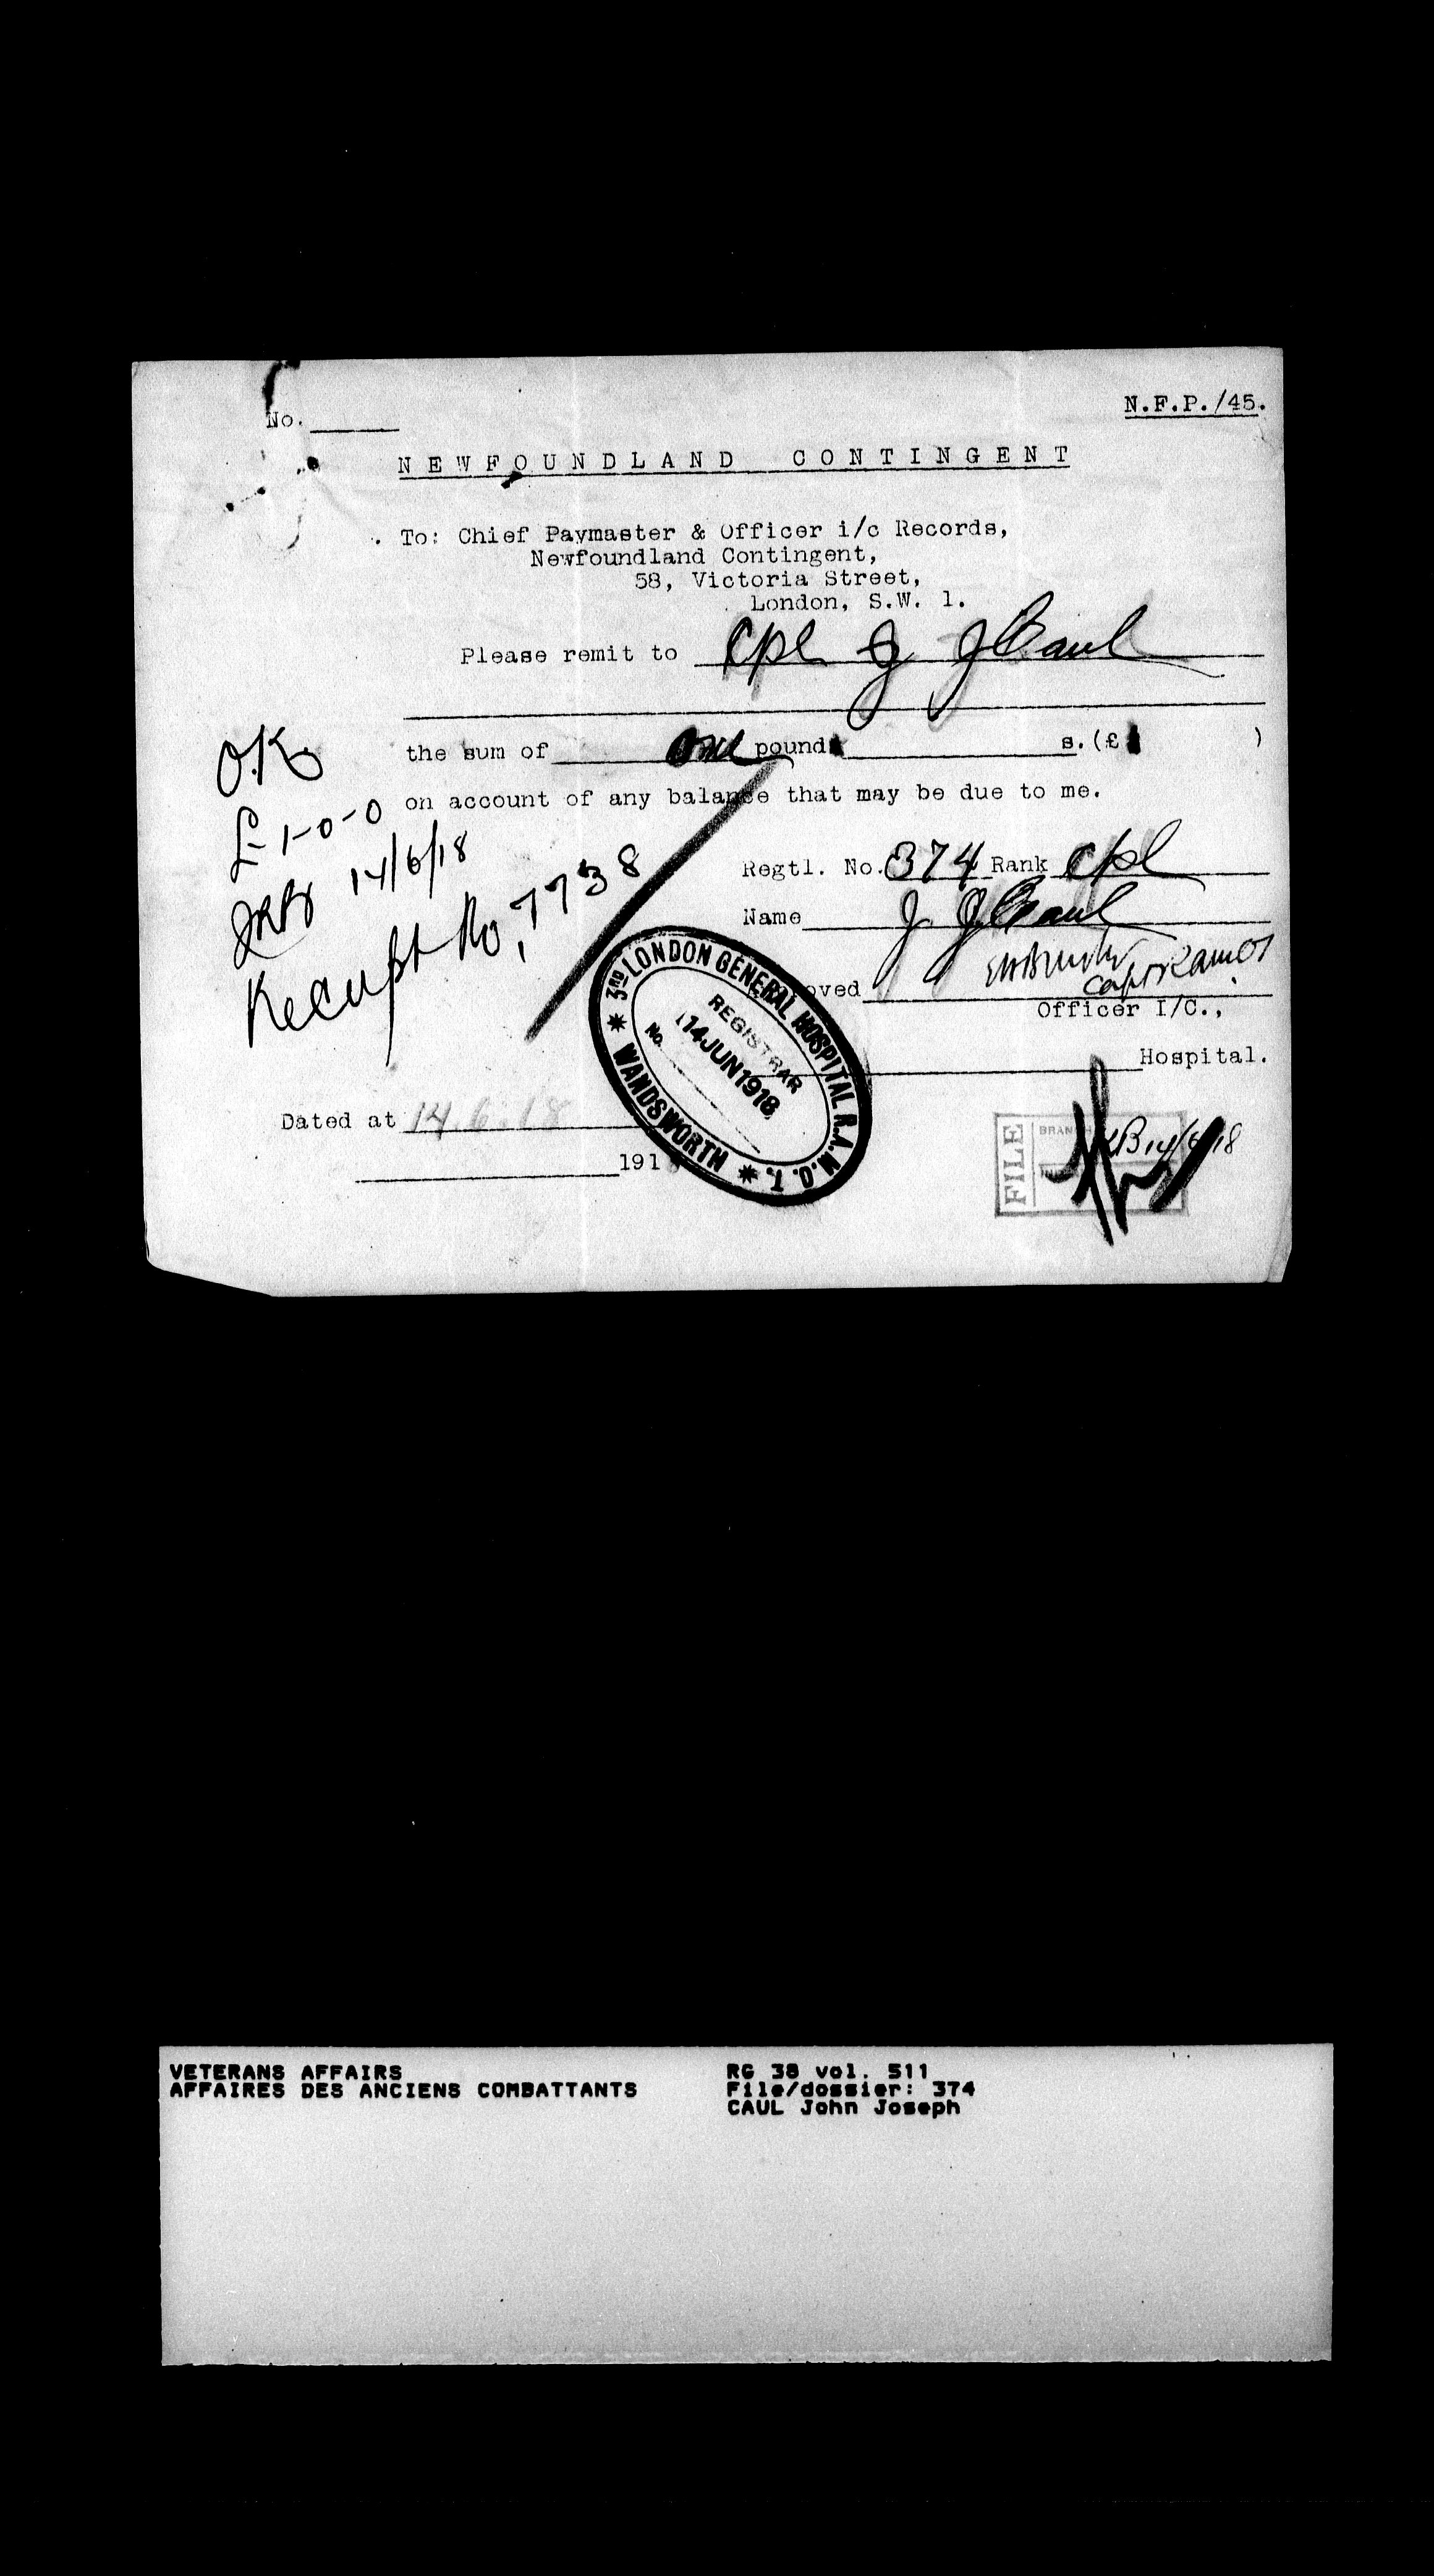 No.
N.F.P./45.
NEWFOUNDLAND CONTINGENT
To: Chief Paymaster & Officer i/c Records,
Newfoundland Contingent,
58, Victoria Street,
London, S.W. 1.
Please remit to Cpl J J Caul
the sum of one pound s. (£1 )
on account of any balance that may be due to me.
O.K.
£1-0-0
14/6/18
Receipt No. 7738
Regtl. No. 374 Rank Cpl
Name J J Caul
oved
Capt RAMCT
Officer I/C.,
Hospital.
3RD LONDON GENERAL HOSPITAL R.A.M.C.T.
WANDSWORTH
REGISTRAR
14 JUN 1918
No.
Dated at 14.6.18
191
FILE
BRANCH
14/6/18
VETERANS AFFAIRS
AFFAIRES DES ANCIENS COMBATTANTS
RG 38 vol. 511
File/dossier: 374
CAUL John Joseph